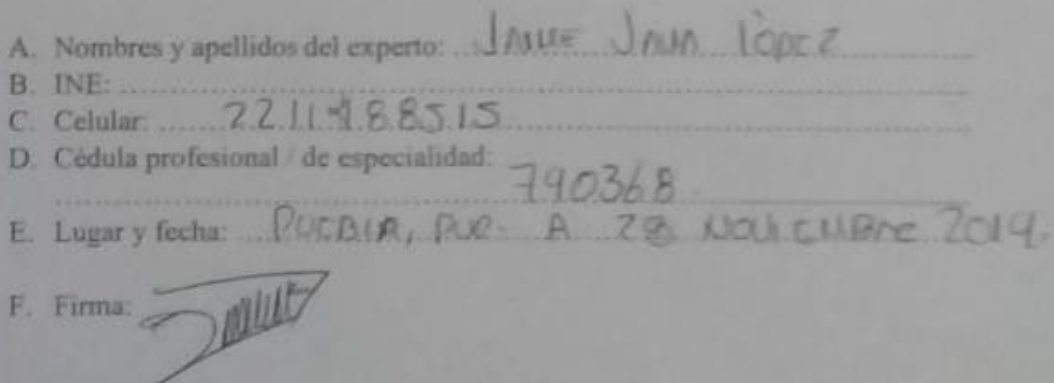 A. Nombres y apellidos del experto: Jaime Juan López
B. INE:
C. Celular: 2211188515
D. Cédula profesional / de especialidad:
790368
E. Lugar y fecha: Puebla, Pue. A 28 Noviembre 2019.
F. Firma: